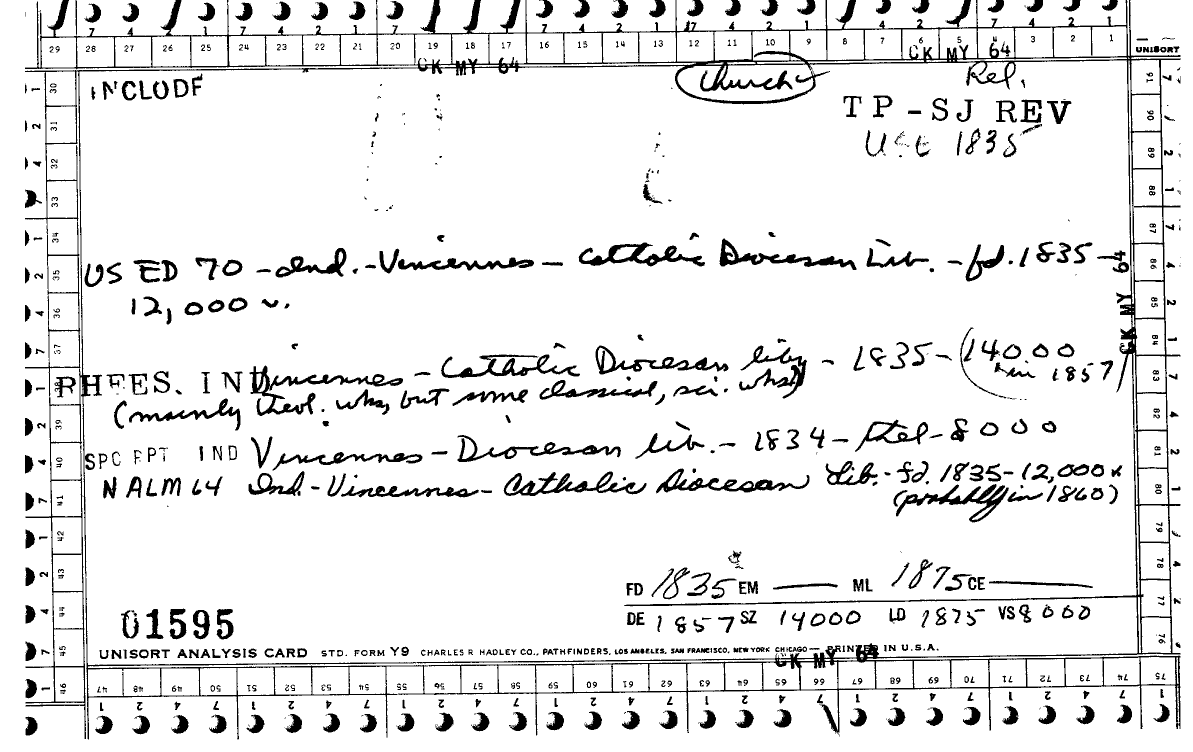 7 4 2 1 7 4 2 1 7 4 2 1 7 4 2 1 7 4 2 1 7 4 2 1 7 4 2 1
29 28 27 26 25 24 23 22 21 20 19 18 17 16 15 14 13 12 11 10 9 8 7 6 5 4 3 2 1 UNISORT
CK MY 64 CK MY 64
INCLUDE Church Rel.
TP-SJ REV
USE 1835
US ED 70 - Ind. - Vincennes - Catholic Diocesan Lib. - fd. 1835 -
12,000 v.
CK MY 64
RHEES. IND Vincennes - Catholic Diocesan liby - 1835 - (14000
in 1857)
(mainly theol. wks, but some classical, sci. wks)
SPC RPT IND Vincennes - Diocesan lib. - 1834 - Thel - 8000
N ALM 64 Ind. - Vincennes - Catholic Diocesan Lib. - fd. 1835 - 12,000 v
(probably in 1860)
FD 1835 EM — ML 1875 CE —
DE 1857 SZ 14000 LD 1875 VS 8000
01595
UNISORT ANALYSIS CARD STD. FORM Y9 CHARLES R HADLEY CO., PATHFINDERS, LOS ANGELES, SAN FRANCISCO, NEW YORK CHICAGO — PRINTED IN U.S.A.
CK MY 64
47 48 49 50 51 52 53 54 55 56 57 58 59 60 61 62 63 64 65 66 67 68 69 70 71 72 73 74 75
1 2 4 7 1 2 4 7 1 2 4 7 1 2 4 7 1 2 4 7 1 2 4 7 1 2 4 7